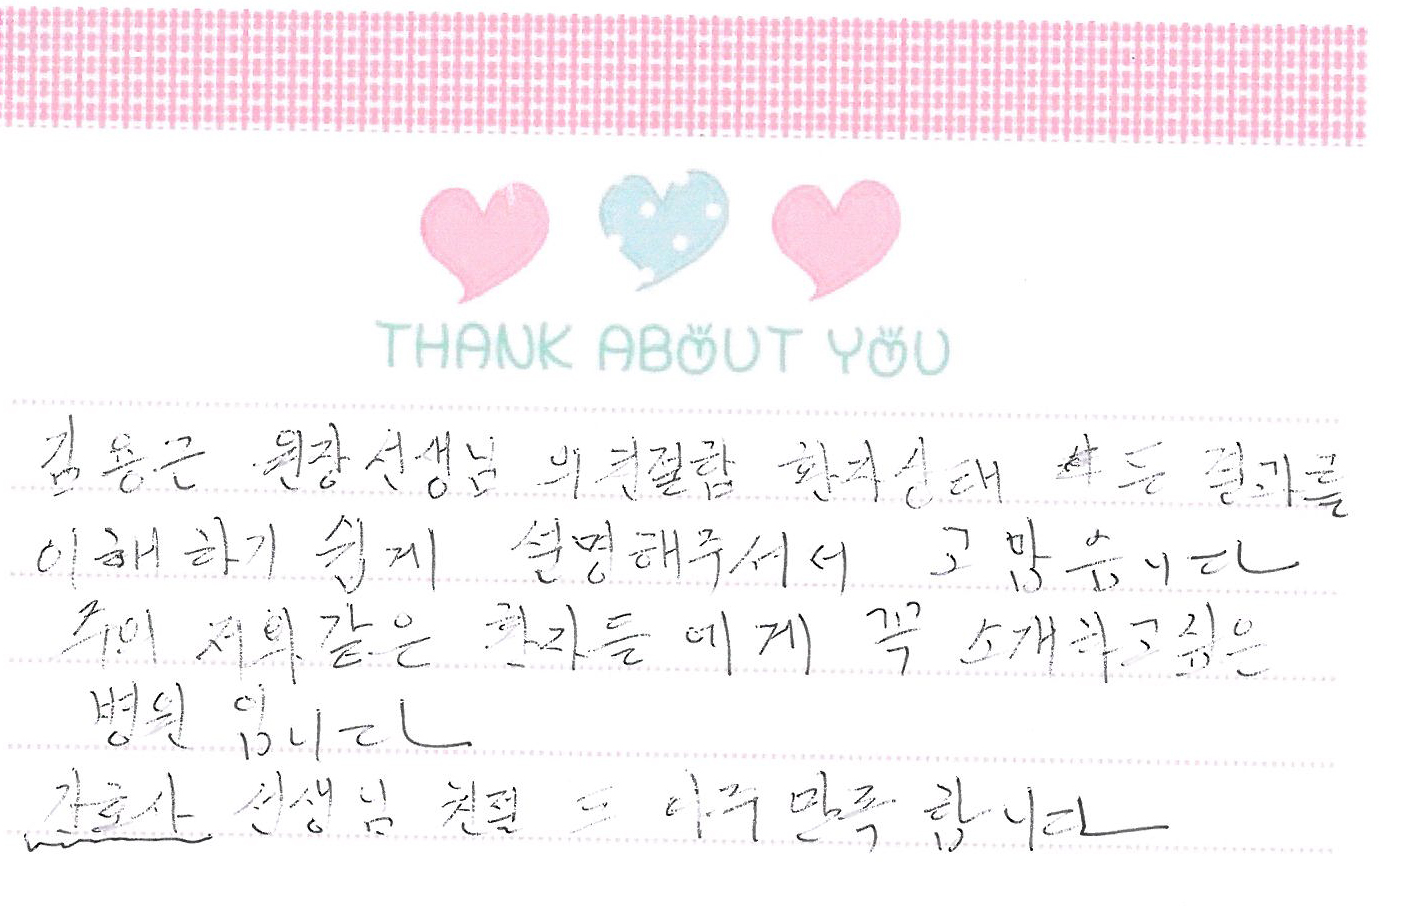 THANK ABOUT YOU
김용근 원장선생님 의친절함 환자상태 모든 결과를
이해 하기 쉽게 설명해주셔서 고맙습니다
주위 저와같은 환자들 에게 꼭 소개하고싶은
병원 입니다
간호사 선생님 친절 도 아주 만족 합니다